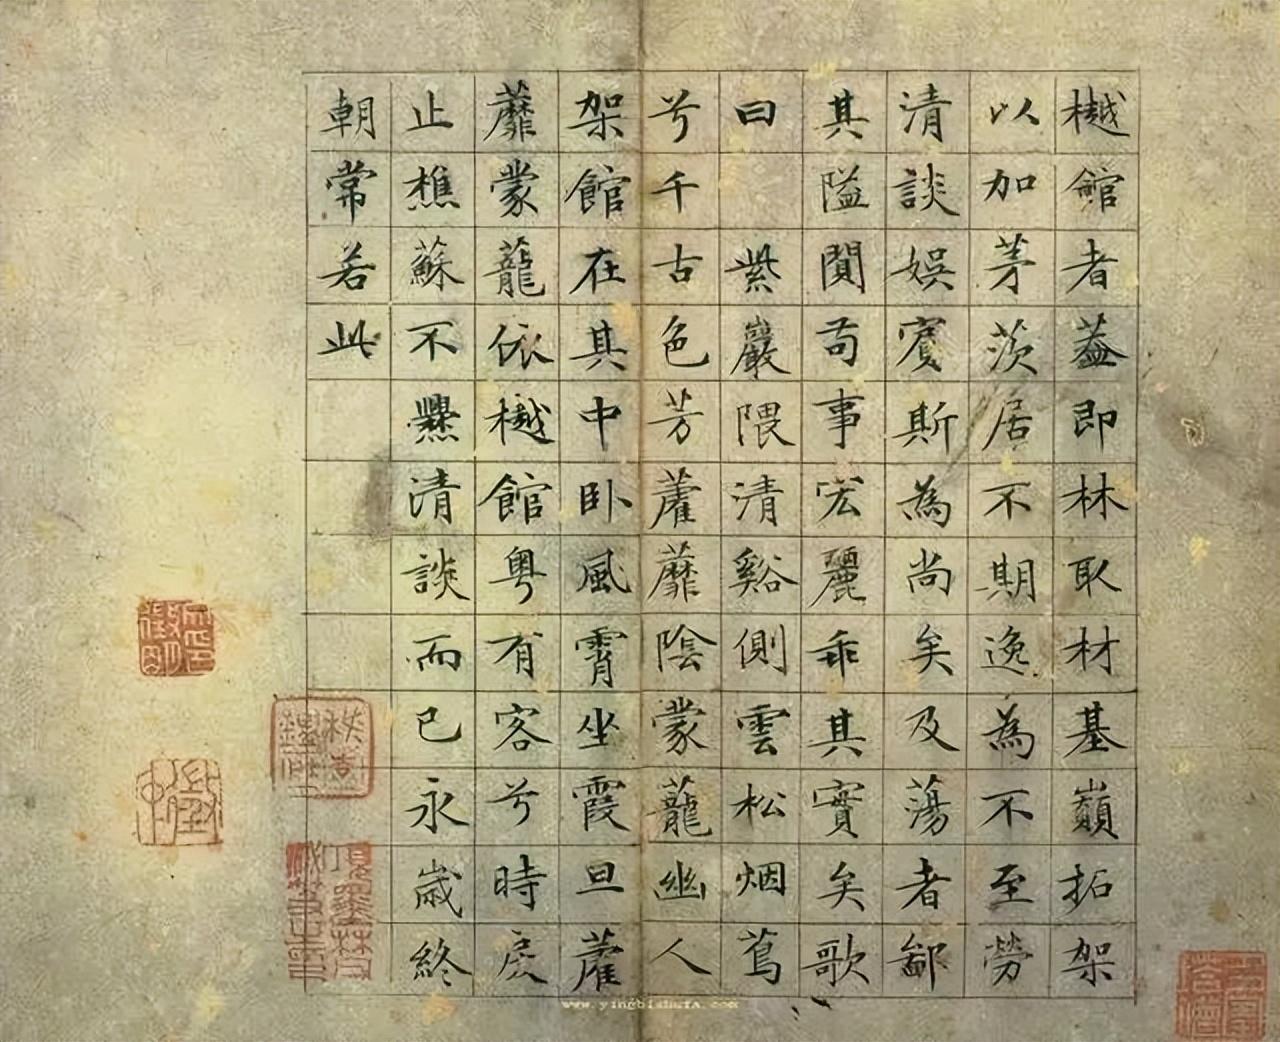 樾館者蓋即林取材基巔拓架
以加茅茨居不期逸為不至勞
清談娛賓斯為尚矣及蕩者鄙
其隘闃苟事宏麗乖其實矣歌
曰 紫巖隈清谿側雲松烟蔦
兮千古色芳藿蘼陰蒙蘢幽人
架館在其中卧風霄坐霞旦藿
蘼蒙蘢依樾館粵有客兮時戾
止樵蘇不爨清談而已永歲終
朝常若此
www.yingbishufa.com